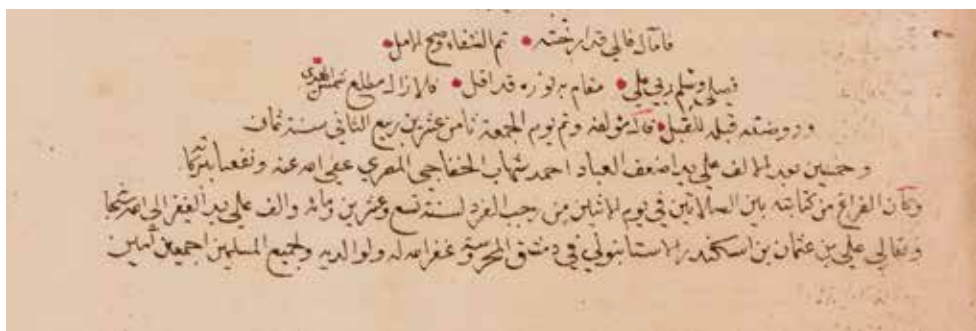 فا مآله فالي قد ارختنه تم الشفاء وصح الامل
فيصلي ويسلم ربي علي مقام به نوره قد اقبل فلا زال مطلع شمس الهدي
وروضته قبلة للقبل قاله مؤلفه وتم يوم الجمعة ثامن عشرين ربيع الثاني سنة ثمان
وخمسين بعد الالف علي يد اضعف العباد احمد شهاب الخفاجي المصري عفي الله عنه ونفعنا ببركته
وكان الفراغ من كتابته بين الصلاتين في يوم الاثنين من رجب الفرد لسنة تسع وعشرين ومائه والف علي يد الفقير الي الله سبحانه
وتعالي علي بن عثمان بن اسكندر الاستانبولي في دمشق المحروسة غفر الله له ولوالديه ولجميع المسلمين اجمعين آمين